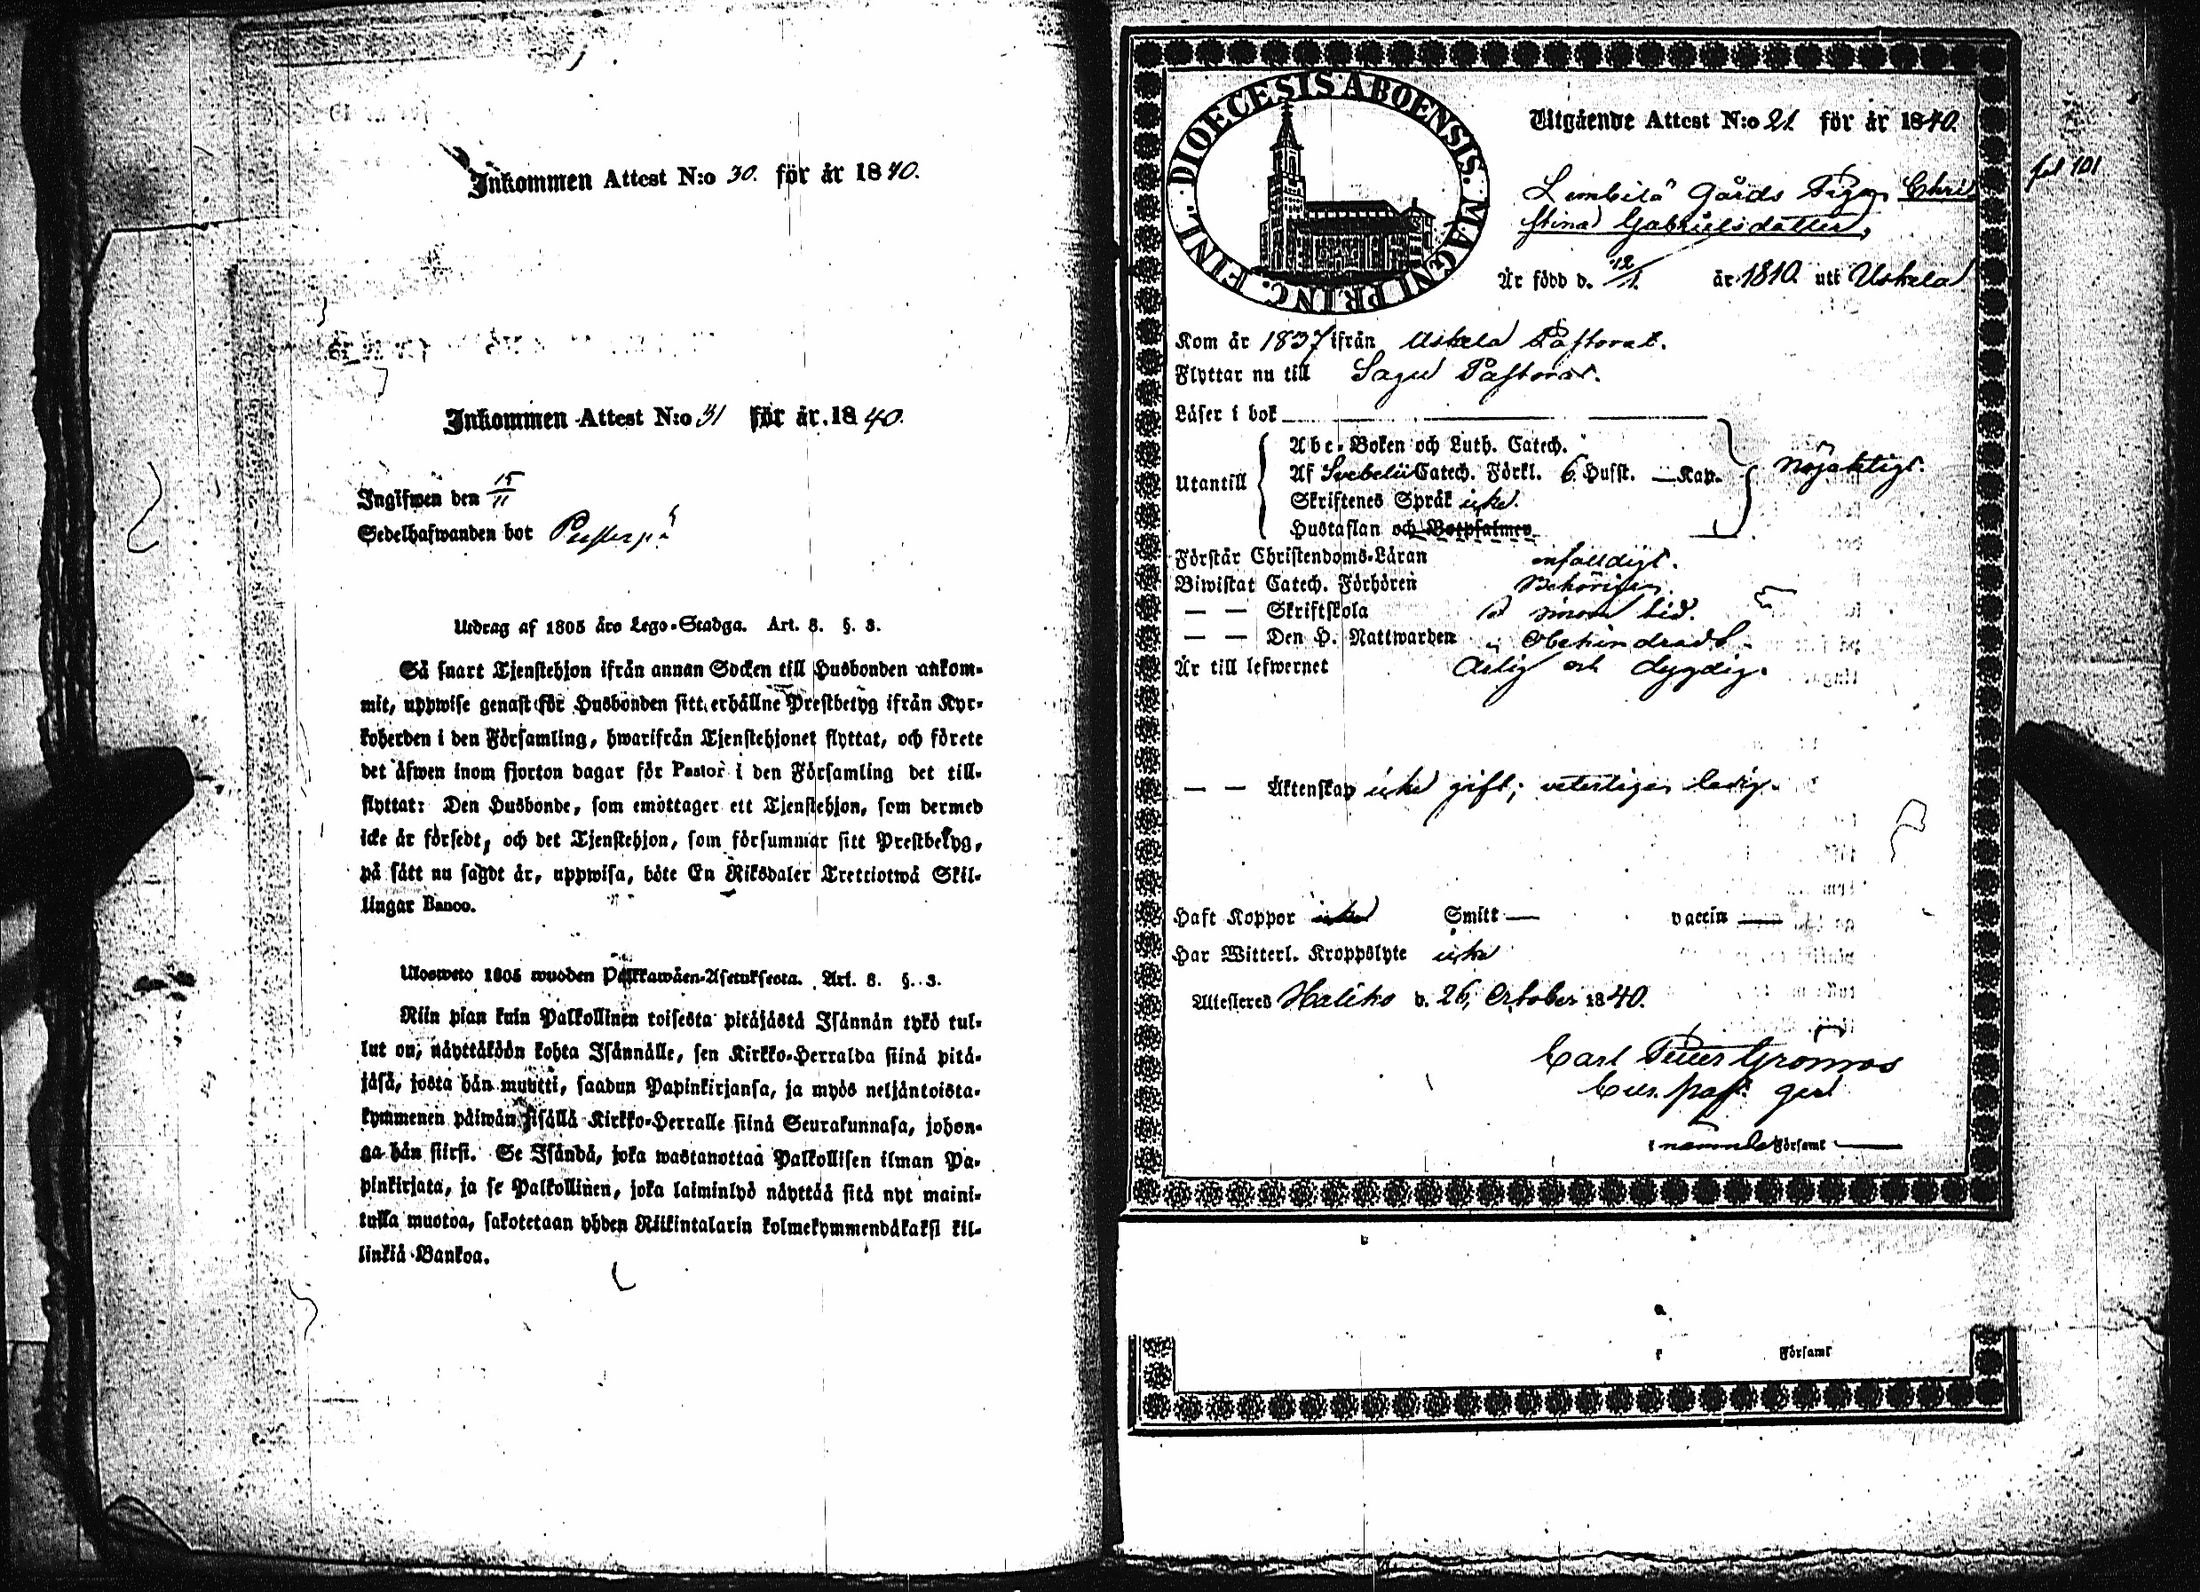 Inkommen Attest N:o 30. för år 1840.
Inkommen Attest N:o 31 för år 1840.
Ingifwen den 15/11
Sedelhafwanden bor
Utdrag af 1805 års Lego-Stadga. Art. 8. §. 3.
Så snart Tjenstehjon ifrån annan Socken till Husbonden ankom-
mit, uppwise genast för Husbonden sitt erhållne Prestbetyg ifrån Kyr-
koherden i den Församling, hwarifrån Tjenstehjonet flyttat, och förete
det äfwen inom fjorton dagar för Pastor i den Församling det till-
flyttat: Den Husbonde, som emottager ett Tjenstehjon, som dermed
icke är försedt, och det Tjenstehjon, som försummar sitt Prestbetyg,
på sätt nu sagdt är, uppwisa, böte En Riksdaler Trettiotwå Skil-
lingar Banco.
Ulosweto 1805 wuoden Palkkawäen-Asetuksesta. Art. 8. §. 3.
Niin pian kuin Palkollinen toisesta pitäjästä Isännän tykö tul-
lut on, näyttäköön kohta Isännälle, sen Kirkko-Herralda siinä pitä-
jäsä, josta hän muutti, saadun Papinkirjansa, ja myös neljäntoista-
kymmenen päiwän sisällä Kirkko-Herralle siinä Seurakunnasa, johon-
ga hän siirsi. Se Isändä, joka wastanottaa Palkollisen ilman Pa-
pinkirjata, ja se Palkollinen, joka laiminlyö näyttää sitä nyt maini-
tulla muotoa, sakotetaan yhden Riikintalarin kolmekymmendäkaksi kil-
linkiä Bankoa.
DIOECESIS ABOENSIS. MAGNI PRINC. FINL.
Utgående Attest N:o 21. för år 1840.
fol 101
Lembilä Gårds Pigan Chri
stina Gabrielsdotter,
Är född d. 12/1. år 1810. uti Uskela
Kom år 1837 ifrån Uskela Pastorat.
Flyttar nu till Sagu Pastorat.
Läser i bok
Utantill
Abc-Boken och Luth. Catech.
Af Svebelii Catech. Förkl. 6. Husst. — Kap.
Skriftenes Språk icke.
Hustaflan och Botpsalmer
Nöjaktigt.
Förstår Christendoms-Läran enfaldigt.
Biwistat Catech. Förhören Behörigen
— — Skriftskola i sinom tid.
— — Den H. Nattwarden Obehindrad
Är till lefwernet Ärlig och dygdig.
— — Äktenskap icke gift; veterligen ledig.
Haft Koppor icke Smitt — vaccin —
Har Witterl. Kroppslyte icke
Attesteres Haliko d. 26, October 1840.
Carl Petter Gronros
i nämnde Församl
i Församl